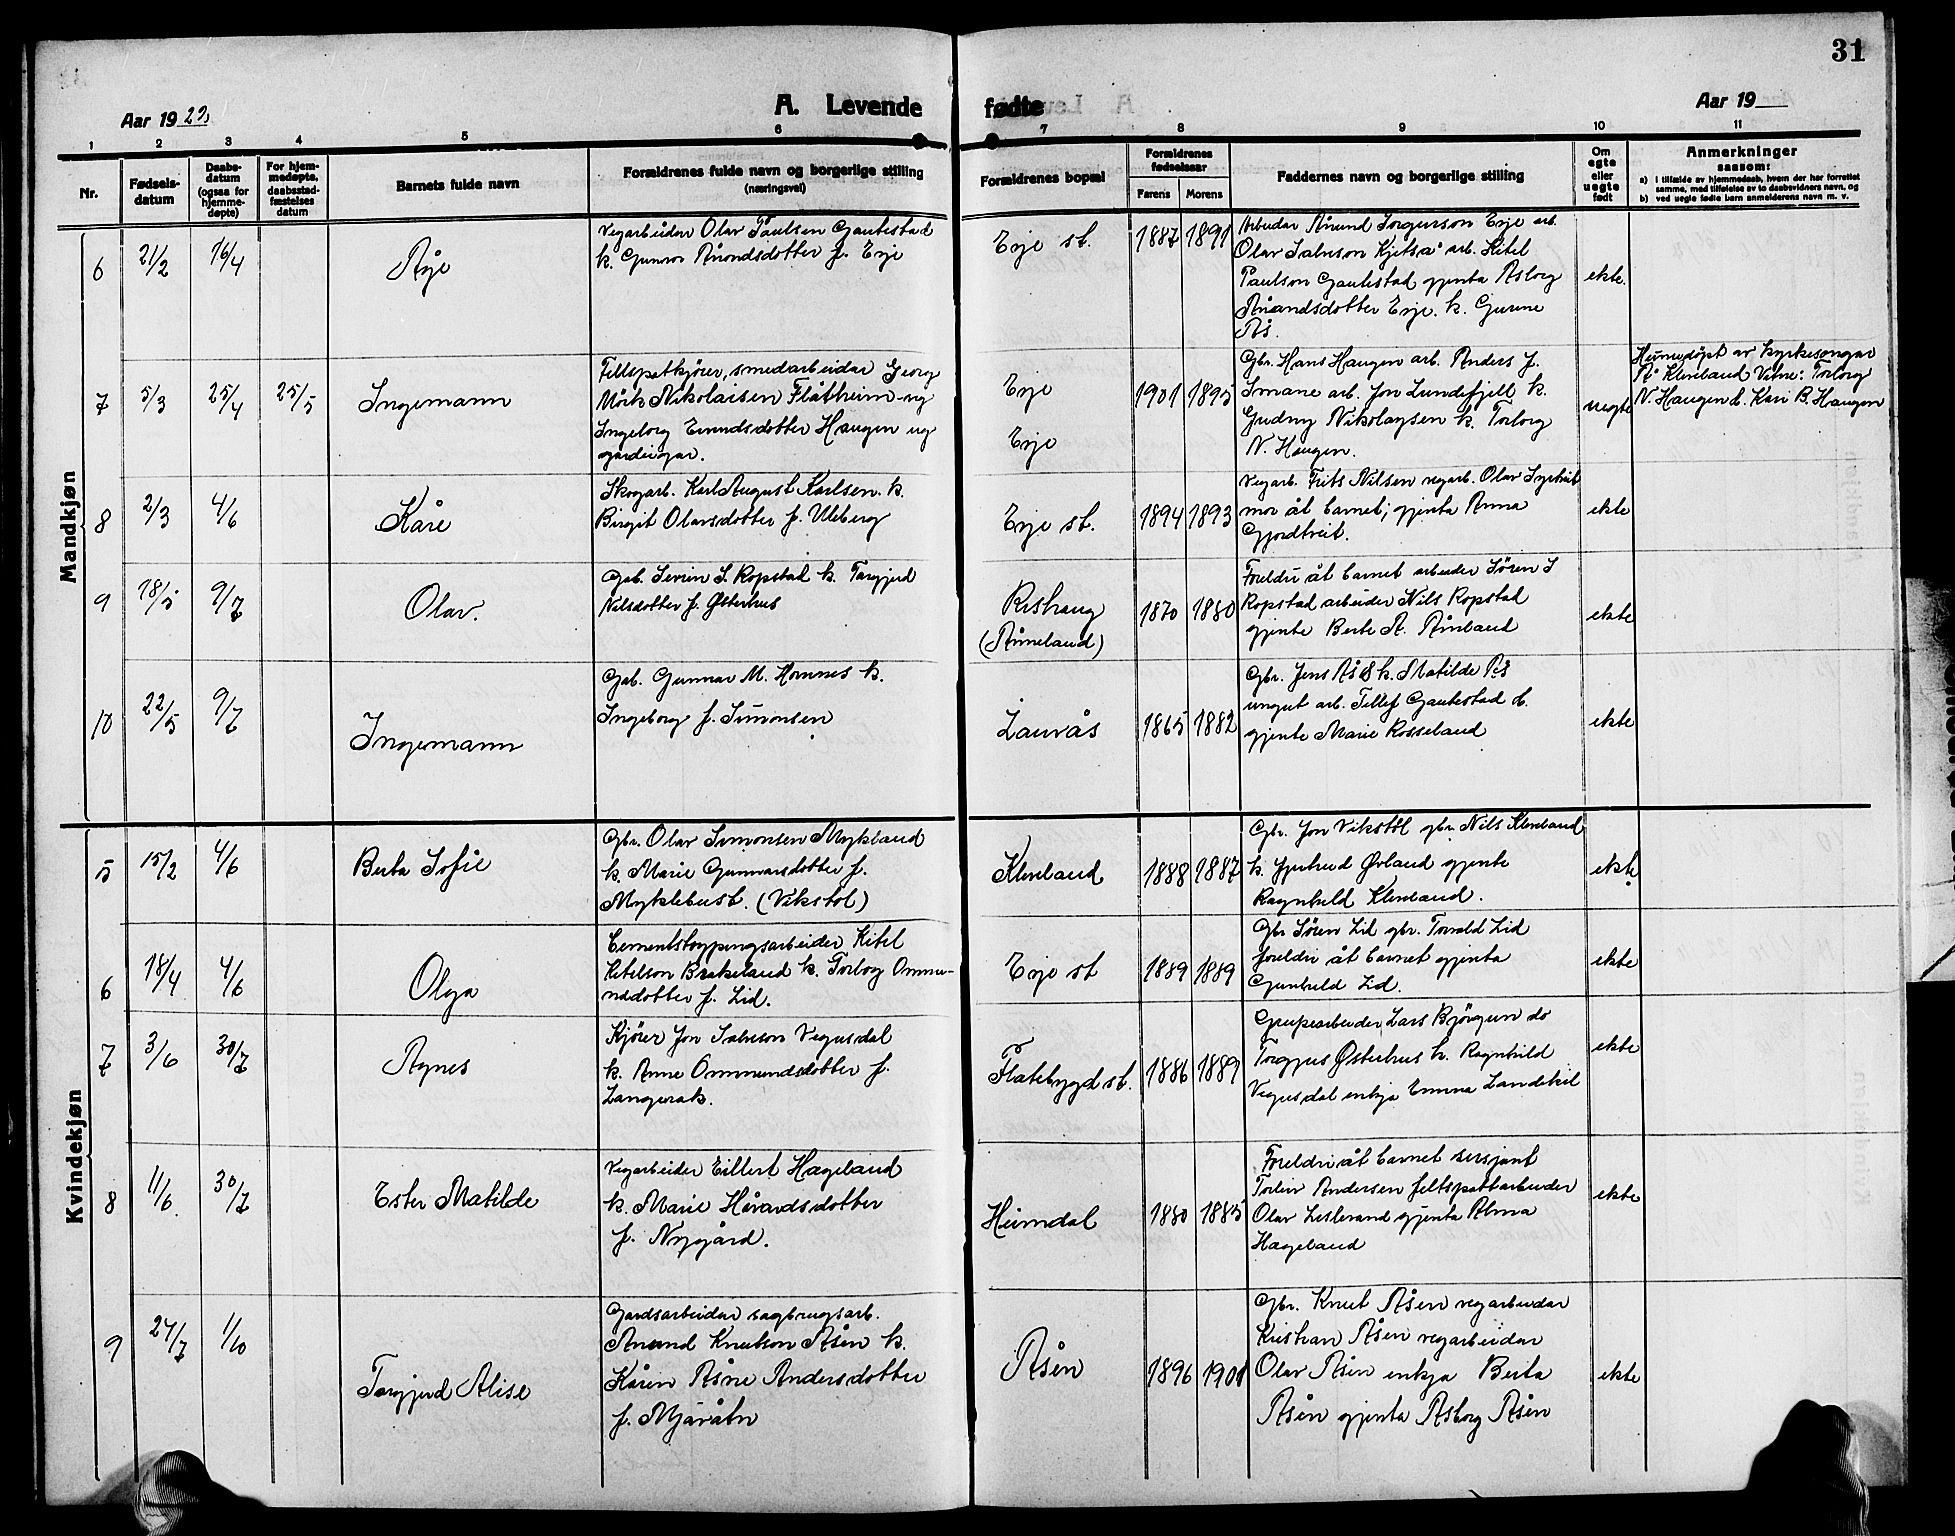 31
Aar 1923
A. Levende fødte
Aar 19
1 2 3 4 5 6 7 8 9 10 11
Nr.
Fødsels-
datum
Daabs-
datum
(ogsaa for
hjemme-
døpte)
For hjem-
medøpte,
daabsstad-
fæstelses
datum
Barnets fulde navn
Forældrenes fulde navn og borgerlige stilling
(næringsvei)
Forældrenes bopæl
Forældrenes
fødselsaar
Farens Morens
Faddernes navn og borgerlige stilling
Om
egte
eller
uegte
født
Anmerkninger
saasom:
a) i tilfælde av hjemmedaab, hvem der har forrettet
samme, med tilføielse av to daabsvidners navn, og
b) ved uegte fødte barn anmelderens navn m. v.
Mandkjøn
6 21/2 16/4
Åge
Vegarbeider Olav Paulsen Gautestad
k. Gunvor Ånondsdotter f. Evje
Evje st.
1887 1891
Arbeidar Ånund Torgurson Evje arb.
Olav Salveson Kjetså arb. Kitel
Paulson Gautestad gjenta Åsborg
Ånandsdotter Evje. k. Gurine
Ås.
ekte.
7 5/3 25/4 25/5
Ingemann
Feltspatkjörer, smedarbeidar Georg
Mörk Nikolaisen Flåtheim ug
Ingeborg Evundsdotter Haugen ug
gardeigar.
Evje
Evje
1901 1895
Gbr. Hans Haugen arb. Anders J.
Smane arb. Jon Lundefjell k.
Gudny Nikolaysen k. Torborg
N. Haugen.
uegte
Heimedöpt av kyrkesongar
Å Kleveland Vitne: Torborg
N. Haugen k. Kari B. Haugen
8 2/3 4/6
Kåre
Skogarb. Karl August Karlsen. k.
Birgit Olavsdotter f. Uleberg
Evje st.
1894 1893
Vegarb. Frits Nilsen vegarb. Olav
mor åt barnet; gjenta Anna
Gjordtveit.
ekte
9 18/5 9/7
Olav.
Gab. Sevrin S. Ropstad k. Targjerd
Nilsdotter f. Østerhus
Rishaug
(Åneland)
1870 1880
Foreldre åt barnet arbeider Sören S
Ropstad arbeider Nils Ropstad
gjente Berte A. Åneland
ekte
10 22/5 9/7
Ingemann
Gab. Gunnar M. Hornnes k.
Ingeborg f. Simonsen
Lauvås
1865 1882
Gbr. Jens Ås & k. Matilde Ås
ungut arb. Tellef Gautestad &.
gjente Marie Rosseland
ekte
Kvindekjøn
5 15/2 4/6
Berta Sofie
Gbr. Olav Simonsen Mykland
k. Marie Gunnarsdotter f.
Myklebust. (Vikstöl)
Kleveland
1888 1887
Gbr. Jon Vikstöl gbr. Nils Kleveland
k. Gjertrud Øvland gjente
Ragnhild Kleveland.
ekte
6 18/4 4/6
Olga
Cementstøypingsarbeider Kitel
Kitelson Brakeland k. Torborg Ommu-
ndsdotter f. Lid.
Evje st
1889 1889
Gbr Sören Lid gbr. Torvald Lid
foreldre åt barnet gjenta
Gunhild Lid.
ekte
7 3/6 30/7
Agnes
Kjörer Jon Salveson Vegusdal
k. Anne Ommundsdotter f.
Langerak.
Flatebygd st.
1886 1889
Grubearbeider Lars Björgun do
Torgjus Østerhus k. Ragnhild
Vegusdal enkja Emma Landskil
ekte
8 11/6 30/7
Ester Matilde
Vegarbeider Eillert Hageland
k. Marie Håvardsdotter
f. Nygård.
Heimdal
1880 1885
Foreldre åt barnet sersjant
Torleiv Andersen feltspattarbeider
Olav gjenta Alma
Hageland
ekte
9 27/7 1/10
Targjerd Alise
Gardsarbeidar sagbrugsarb.
Anund Knutson Åsen k.
Kåren Åsne Andersdotter
f. Mjåvatn
Åsen
1896 1901
Gbr. Knut Åsen vegarbeidar
Kristian Åsen vegarbeidar
Olav Åsen enkja Berta
Åsen gjenta Åsborg Åsen
ekte